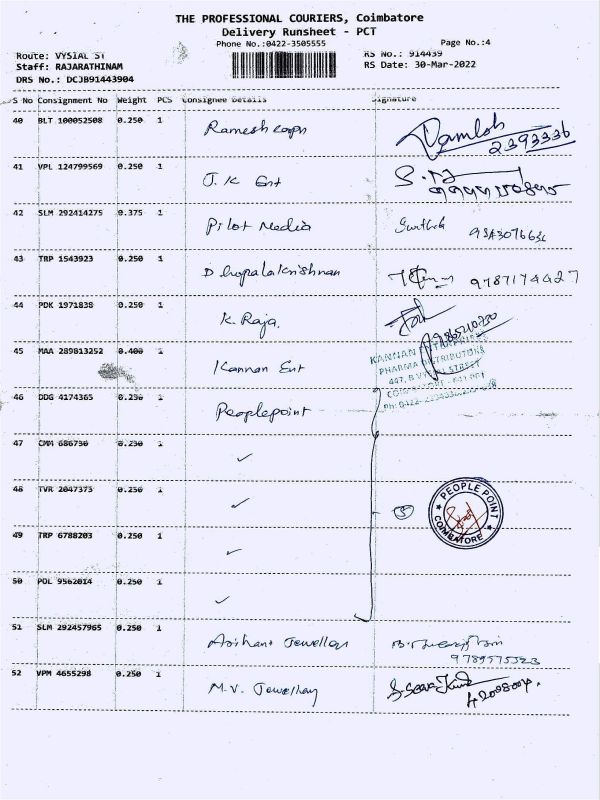 THE PROFESSIONAL COURIERS, Coimbatore
Delivery Runsheet - PCT
Phone No.:0422-3505555 Page No.:4
Route: VYSIAL ST RS No.: 914439
Staff: RAJARATHINAM RS Date: 30-Mar-2022
DRS No.: DCJB91443904
S No Consignment No Weight PCS Consignee Details Signature
40 BLT 100052508 0.250 1 Ramesh
2393336
41 VPL 124799569 0.250 1 J.K Ent
42 SLM 292414275 0.375 1 Pilot Media
43 TRP 1543923 0.250 1 D hopalakrishnan 9787174427
44 PDK 1971838 0.250 1 K. Raja.
45 MAA 289813252 0.400 1 Kannan Ent
KANNAN ENTERPRISES
PHARMA DISTRIBUTORS
447, B VYSIAL STREET
46 DDG 4174365 0.250 1 Peoplepoint
47 CMM 686730 0.250 1 ✓
48 TVR 2047373 0.250 1 ✓ 5
PEOPLE POINT
COIMBATORE
49 TRP 6788203 0.250 1 ✓
50 POL 9562014 0.250 1 ✓
51 SLM 292457965 0.250 1 Arihant Jewellers
9789575523
52 VPM 4655298 0.250 1 M.V. Jewellery